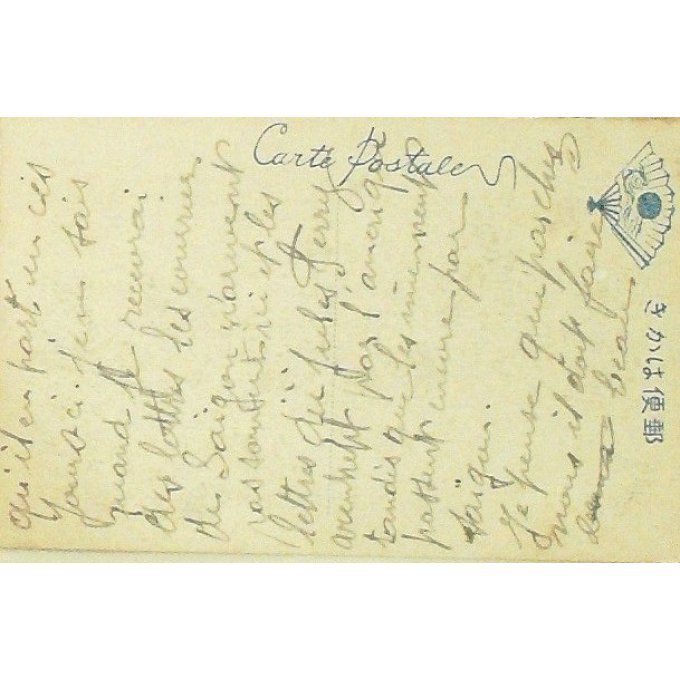 Carte Postale
きかは便郵
qu'il en part un ces
jours ci je ne sais
quand je recevrai
des lettres les courriers
de Saigon n'arrivent
pas souvent ici et les
lettres du Jules Ferry
arrivent par l'amérique
tandis que les miennent
passent encore par
Saigon.
Je pense que par chez
vous il doit faire
beau